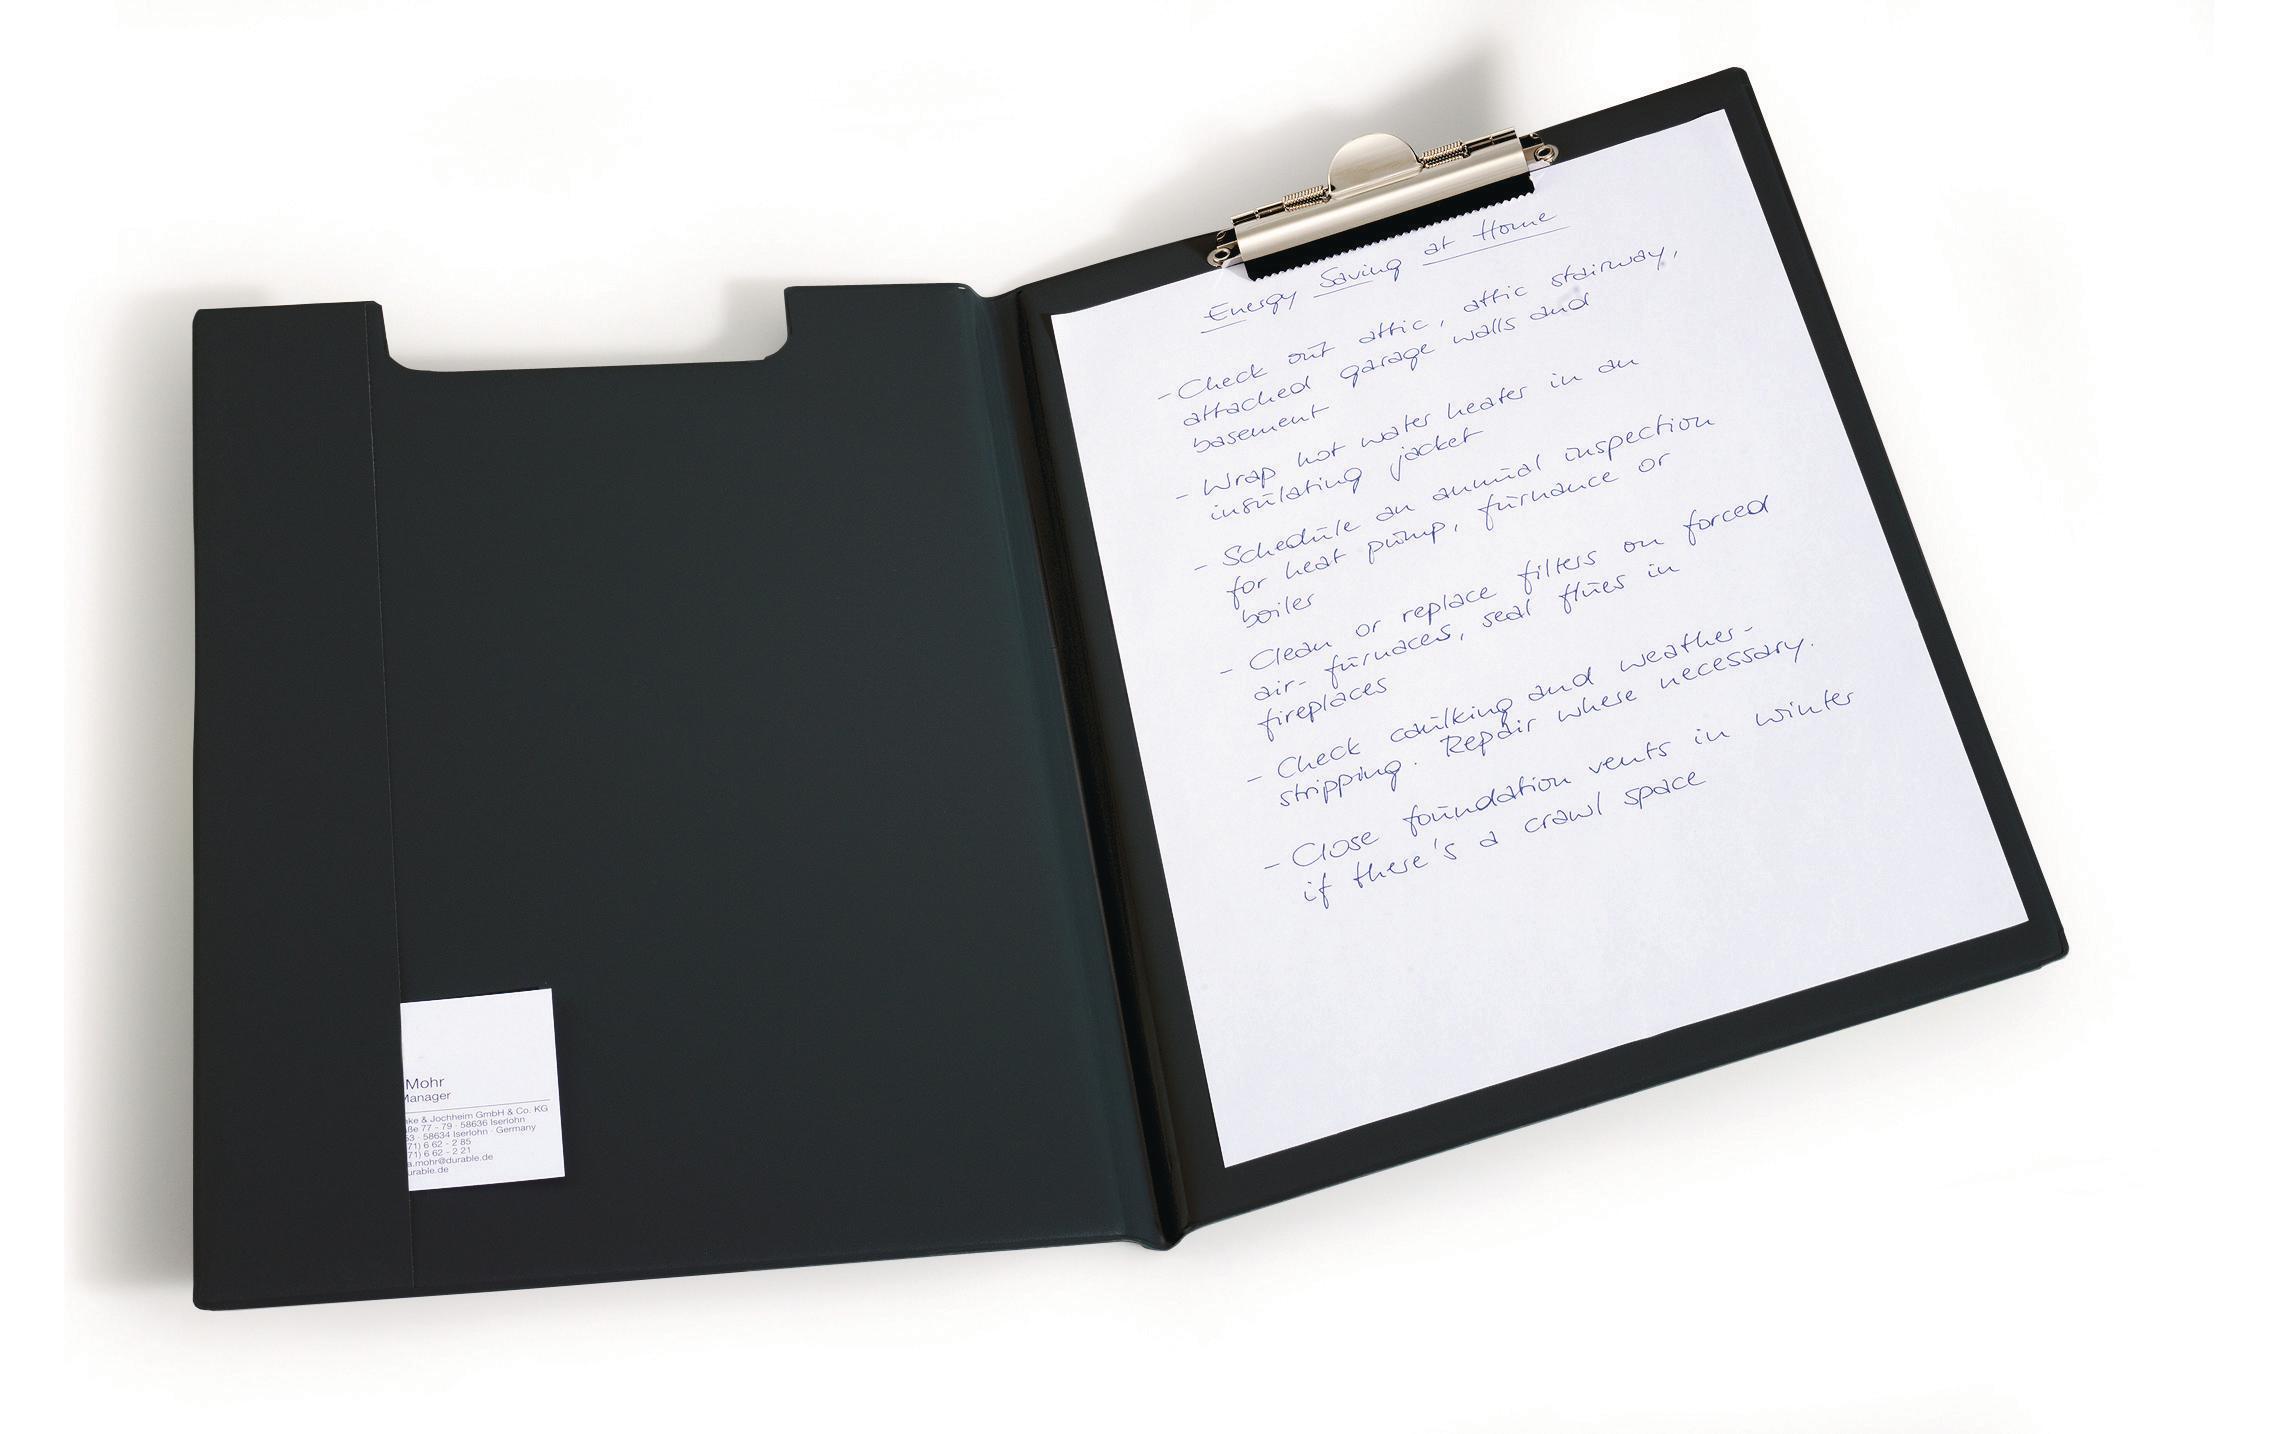 Energy Saving at Home
- Check out attic, attic stairway,
attached garage walls and
basement
- Wrap hot water heater in an
insulating jacket
- Schedule an annual inspection
for heat pump, furnance or
boiler
- Clean or replace filters on forced
air- furnaces, seal flues in
fireplaces
- Check caulking and weather-
stripping. Repair where necessary.
- Close foundation vents in winter
if there's a crawl space
Mohr
Manager
nke & Jochheim GmbH & Co. KG
aße 77 - 79 · 58636 Iserlohn
53 · 58634 Iserlohn · Germany
71) 6 62 - 2 85
71) 6 62 - 2 21
a.mohr@durable.de
urable.de